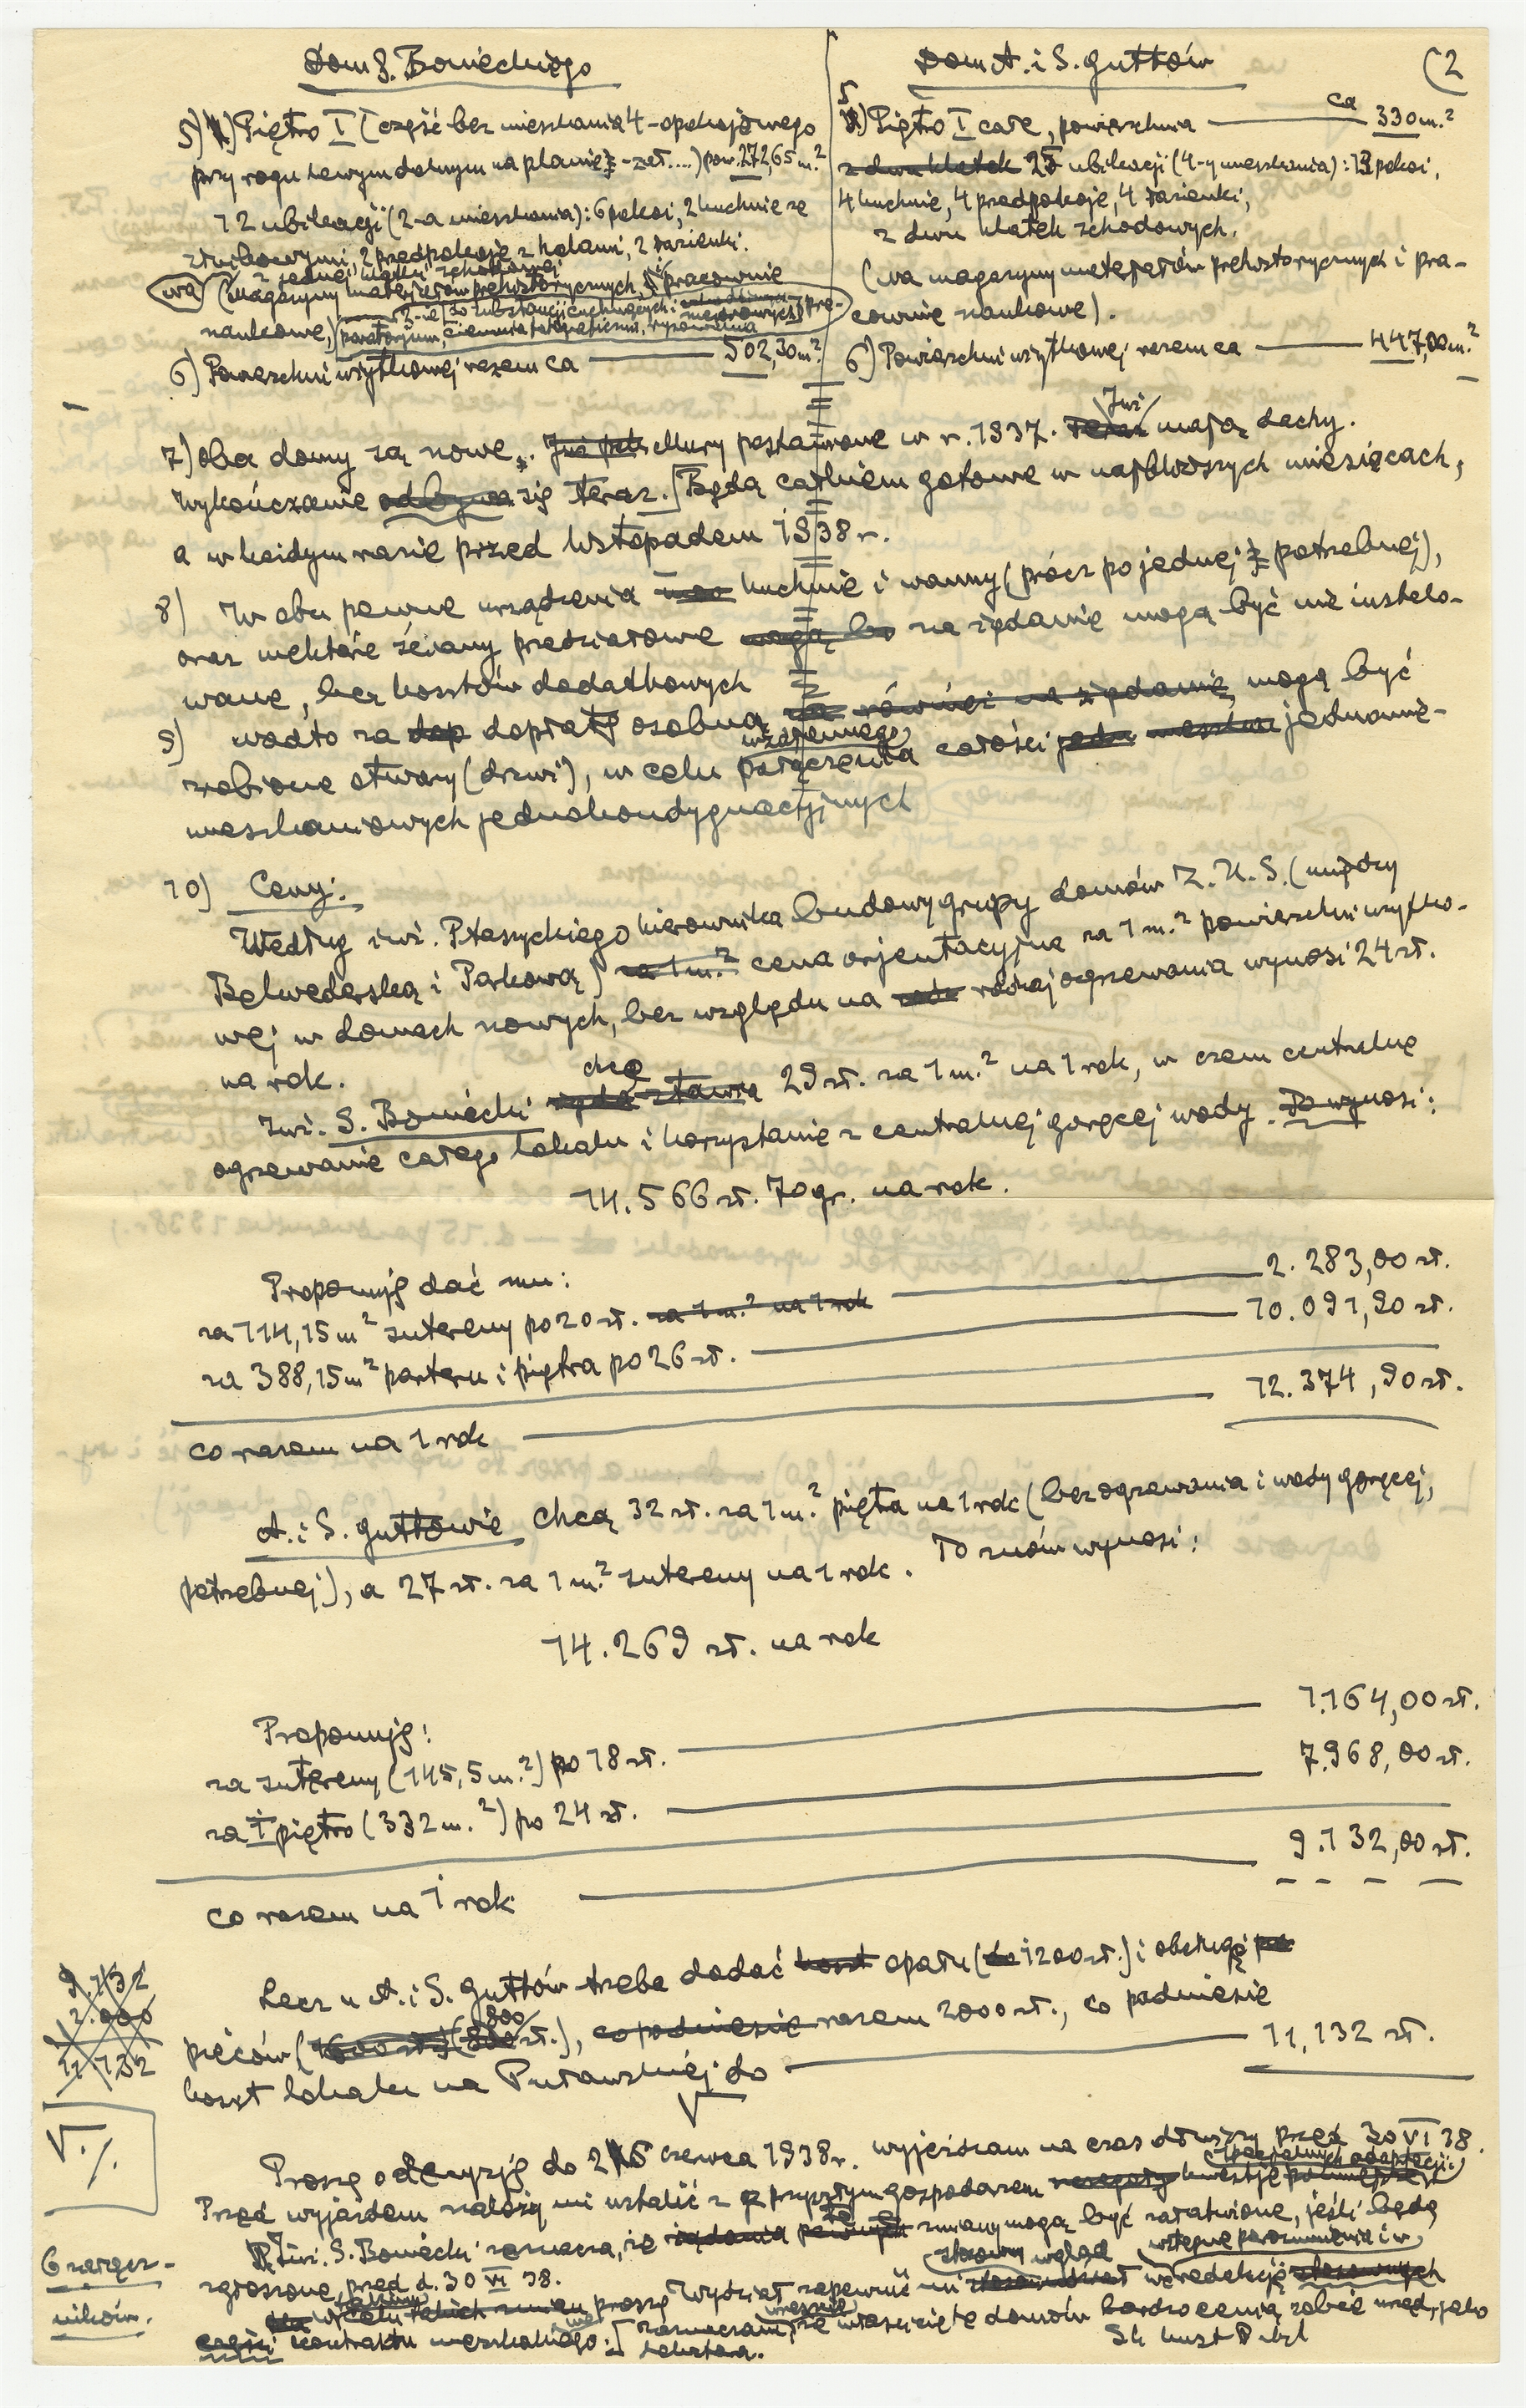 Dom S. Bonieckiego
5) Piętro I (część bez mieszkania 4-opokojowego
przy rogu lewym dolnym na planie) pow. 272,65 m.²
12 ubikacji (2-a mieszkania): 6 pokoi, 2 kuchnie ze
służbowymi, 2 przedpokoje z holami, 2 łazienki.
z jednej klatki schodowej
(na) (magazyny materjałów prehistorycznych, i pracownie
naukowe,) ciemnia fotograficzna, rysownia
6) Powierzchni użytkowej razem ca 502,30 m.²
Dom A. i S. Guttów (2
5) Piętro I całe, powierzchnia ca 330 m.²
z dwu klatek 25 ubikacji (4-y mieszkania): 13 pokoi,
4 kuchnie, 4 przedpokoje, 4 łazienki,
z dwu klatek schodowych.
(na magazyny materjałów prehistorycznych i pra-
cownie naukowe).
6) Powierzchni użytkowej razem ca 447,00 m.²
7) Oba domy są nowe. Mury postawione w r. 1937. Już mają dachy.
Wykończanie odbywa się teraz. Będą całkiem gotowe w najbliższych miesiącach,
a w każdym razie przed listopadem 1938 r.
8) W obu pewne urządzenia kuchnie i wanny (prócz po jednej potrzebnej),
oraz niektóre ściany przedziałowe mogą być na żądanie mogą być nie instalo-
wane, bez kosztów dodatkowych
9) nadto za dop dopłatą osobną również na żądanie, mogą być
zrobione otwory (drzwi), w celu wzajemnego połączenia całości jednomie-
mieszkaniowych jednokondygnacyjnych
10) Ceny:
Według inż. Ptaszyckiego kierownika budowy grupy domów Z.U.S. (między
Belwederską i Parkową) za 1 m.² cena orjentacyjna za 1 m.² powierzchni użytko-
wej w domach nowych, bez względu na rodzaj ogrzewania wynosi 24 zł.
na rok.
Inż. S. Boniecki chce 29 zł. za 1 m.² na 1 rok, w czem centralne
ogrzewanie całego lokalu i korzystanie z centralnej gorącej wody. To wynosi:
14.566 zł. 70 gr. na rok.
Proponuję dać mu:
za 114,15 m² sutereny po 20 zł. za 1 m.² na 1 rok 2.283,00 zł.
za 388,15 m² parteru i piętra po 26 zł. 10.091,90 zł.
co razem na 1 rok 12.374,90 zł.
A. i S. Guttowie chcą 32 zł. za 1 m.² piętra na 1 rok (bez ogrzewania i wody gorącej,
potrzebnej), a 27 zł. za 1 m.² sutereny na 1 rok. To znów wynosi:
14.269 zł. na rok
Proponuję:
za sutereny (145,5 m.²) po 18 zł. 1.164,00 zł.
za I piętro (332 m.²) po 24 zł. 7.968,00 zł.
co razem na 1 rok 9.132,00 zł.
9.132
2.000
11.132
Lecz u A. i S. Guttów trzeba dodać koszt opału (do 1200 zł.) i obsługę
pieców (800 zł.), co podniesie razem 2000 zł., co podniesie
koszt lokalu na Puławskiej do 11,132 zł.
V./.
Proszę o decyzję do 25 czerwca 1938 r. wyjeżdżam na czas dłuższy przed 30 VI 38.
Przed wyjazdem należy mi ustalić z przyszłym gospodarzem kwestję
Inż. S. Boniecki zaznacza, że zmiany mogą być załatwione, jeśli będą
zgłoszone przed d. 30 VI 38.
proszę Wydział zapewnić mi
części kontraktu mieszkalnego. zaznaczam, że właściciele domów bardzo cenią sobie urząd, jako
lokatora.
6 zarącz-
ników.